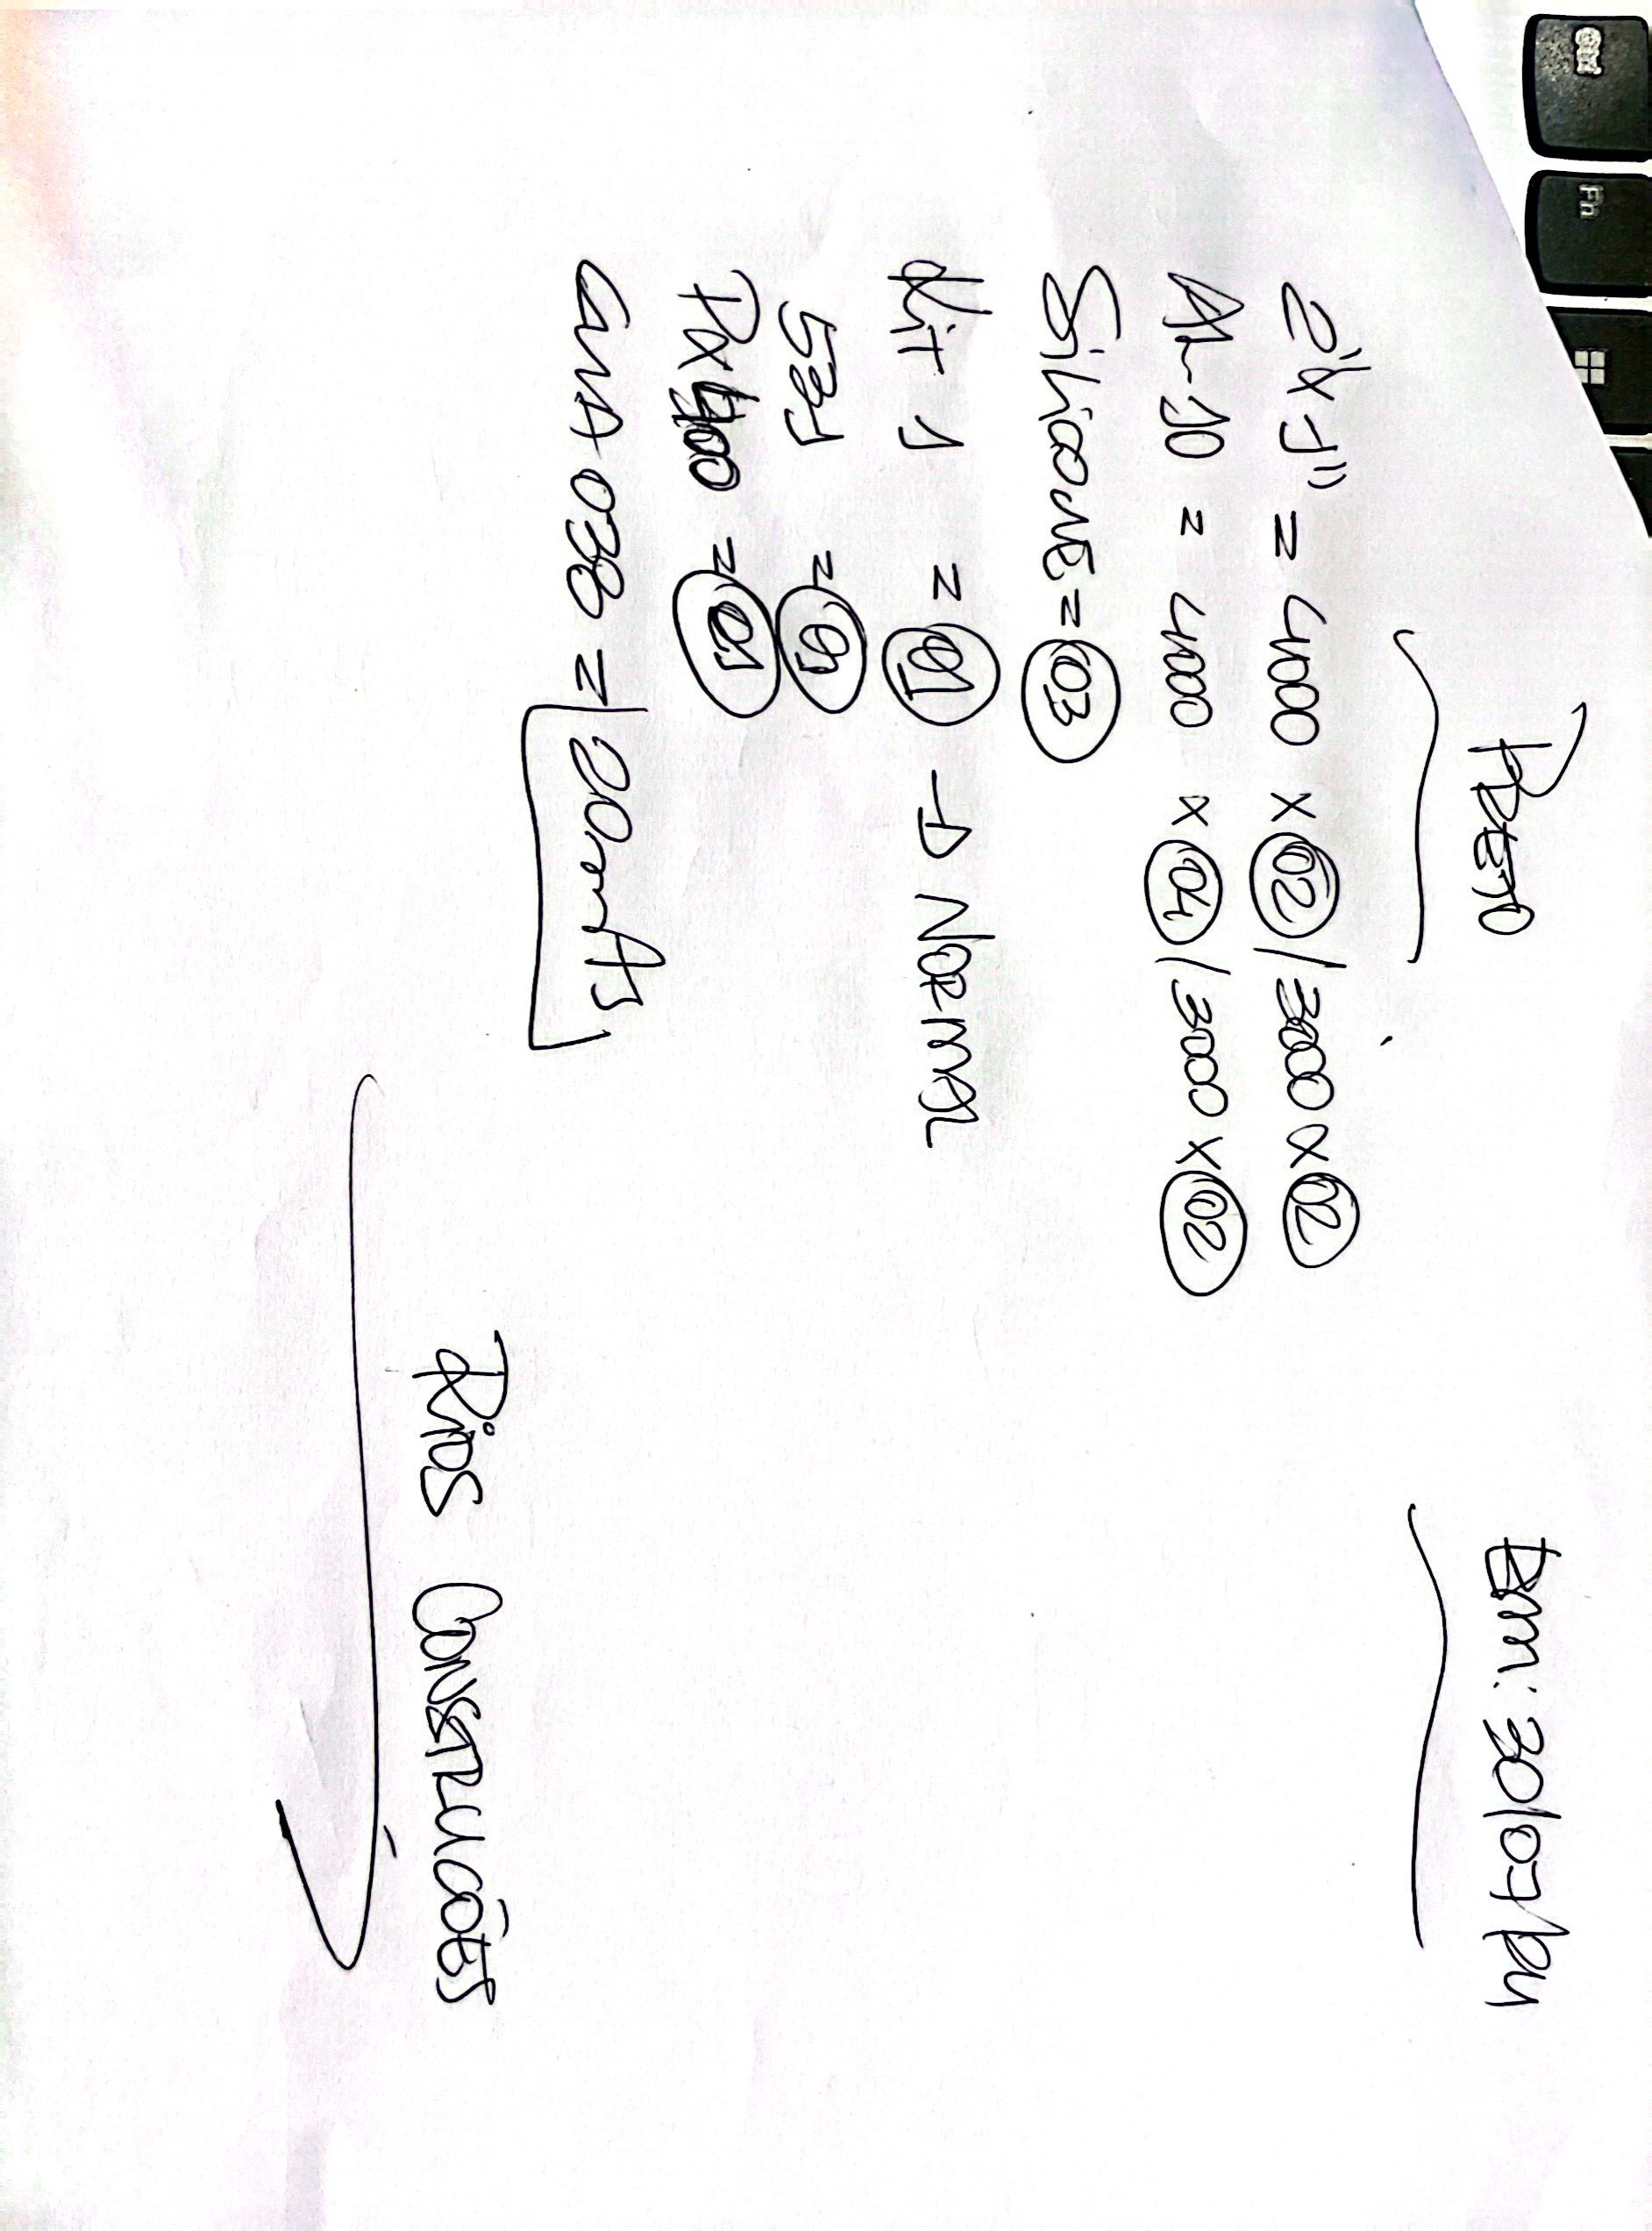 PRETO
Em: 30/07/24
2"x1" = 4000 x 02 / 3000 x 02
AL-10 = 4000 x 04 / 3000 x 02
SiliCONE = 03
Kit 1 = 01 → NORMAL
531 = 01
PX400 = 01
GUA 038 = 20mts
RiOS CONSTRUCÕES
End
Fn